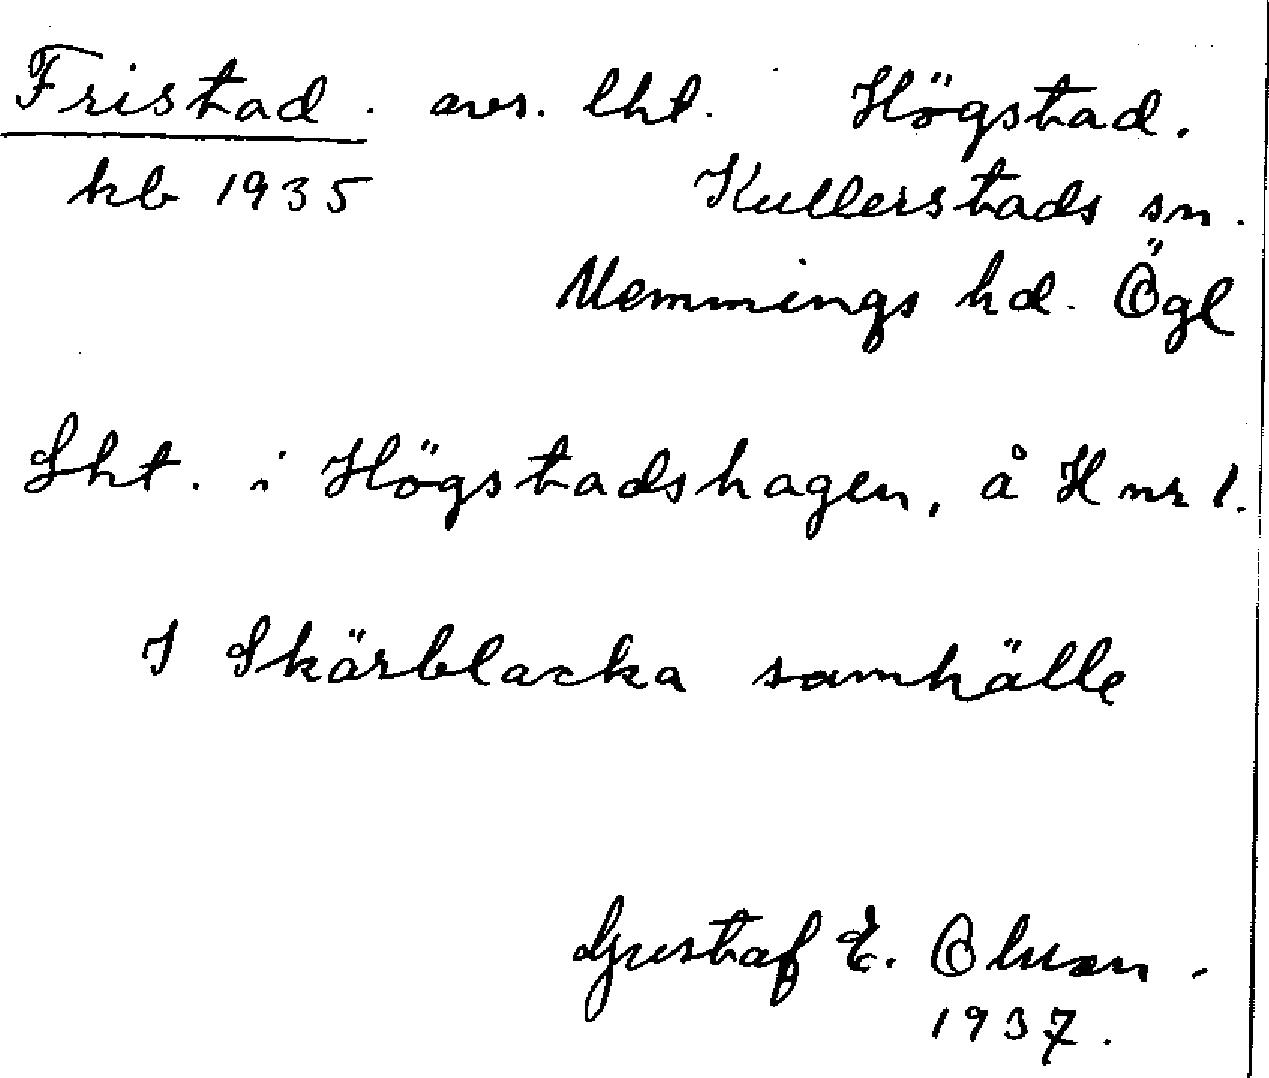 Fristad. avs. lht. Högstad.
kb 1935 Kullerstads sn.
Memmings hd. Ögl
Lht. i Högstadshagen, å H nr 1.
I Skärblacka samhälle
Gustaf E. Olsson.
1937.